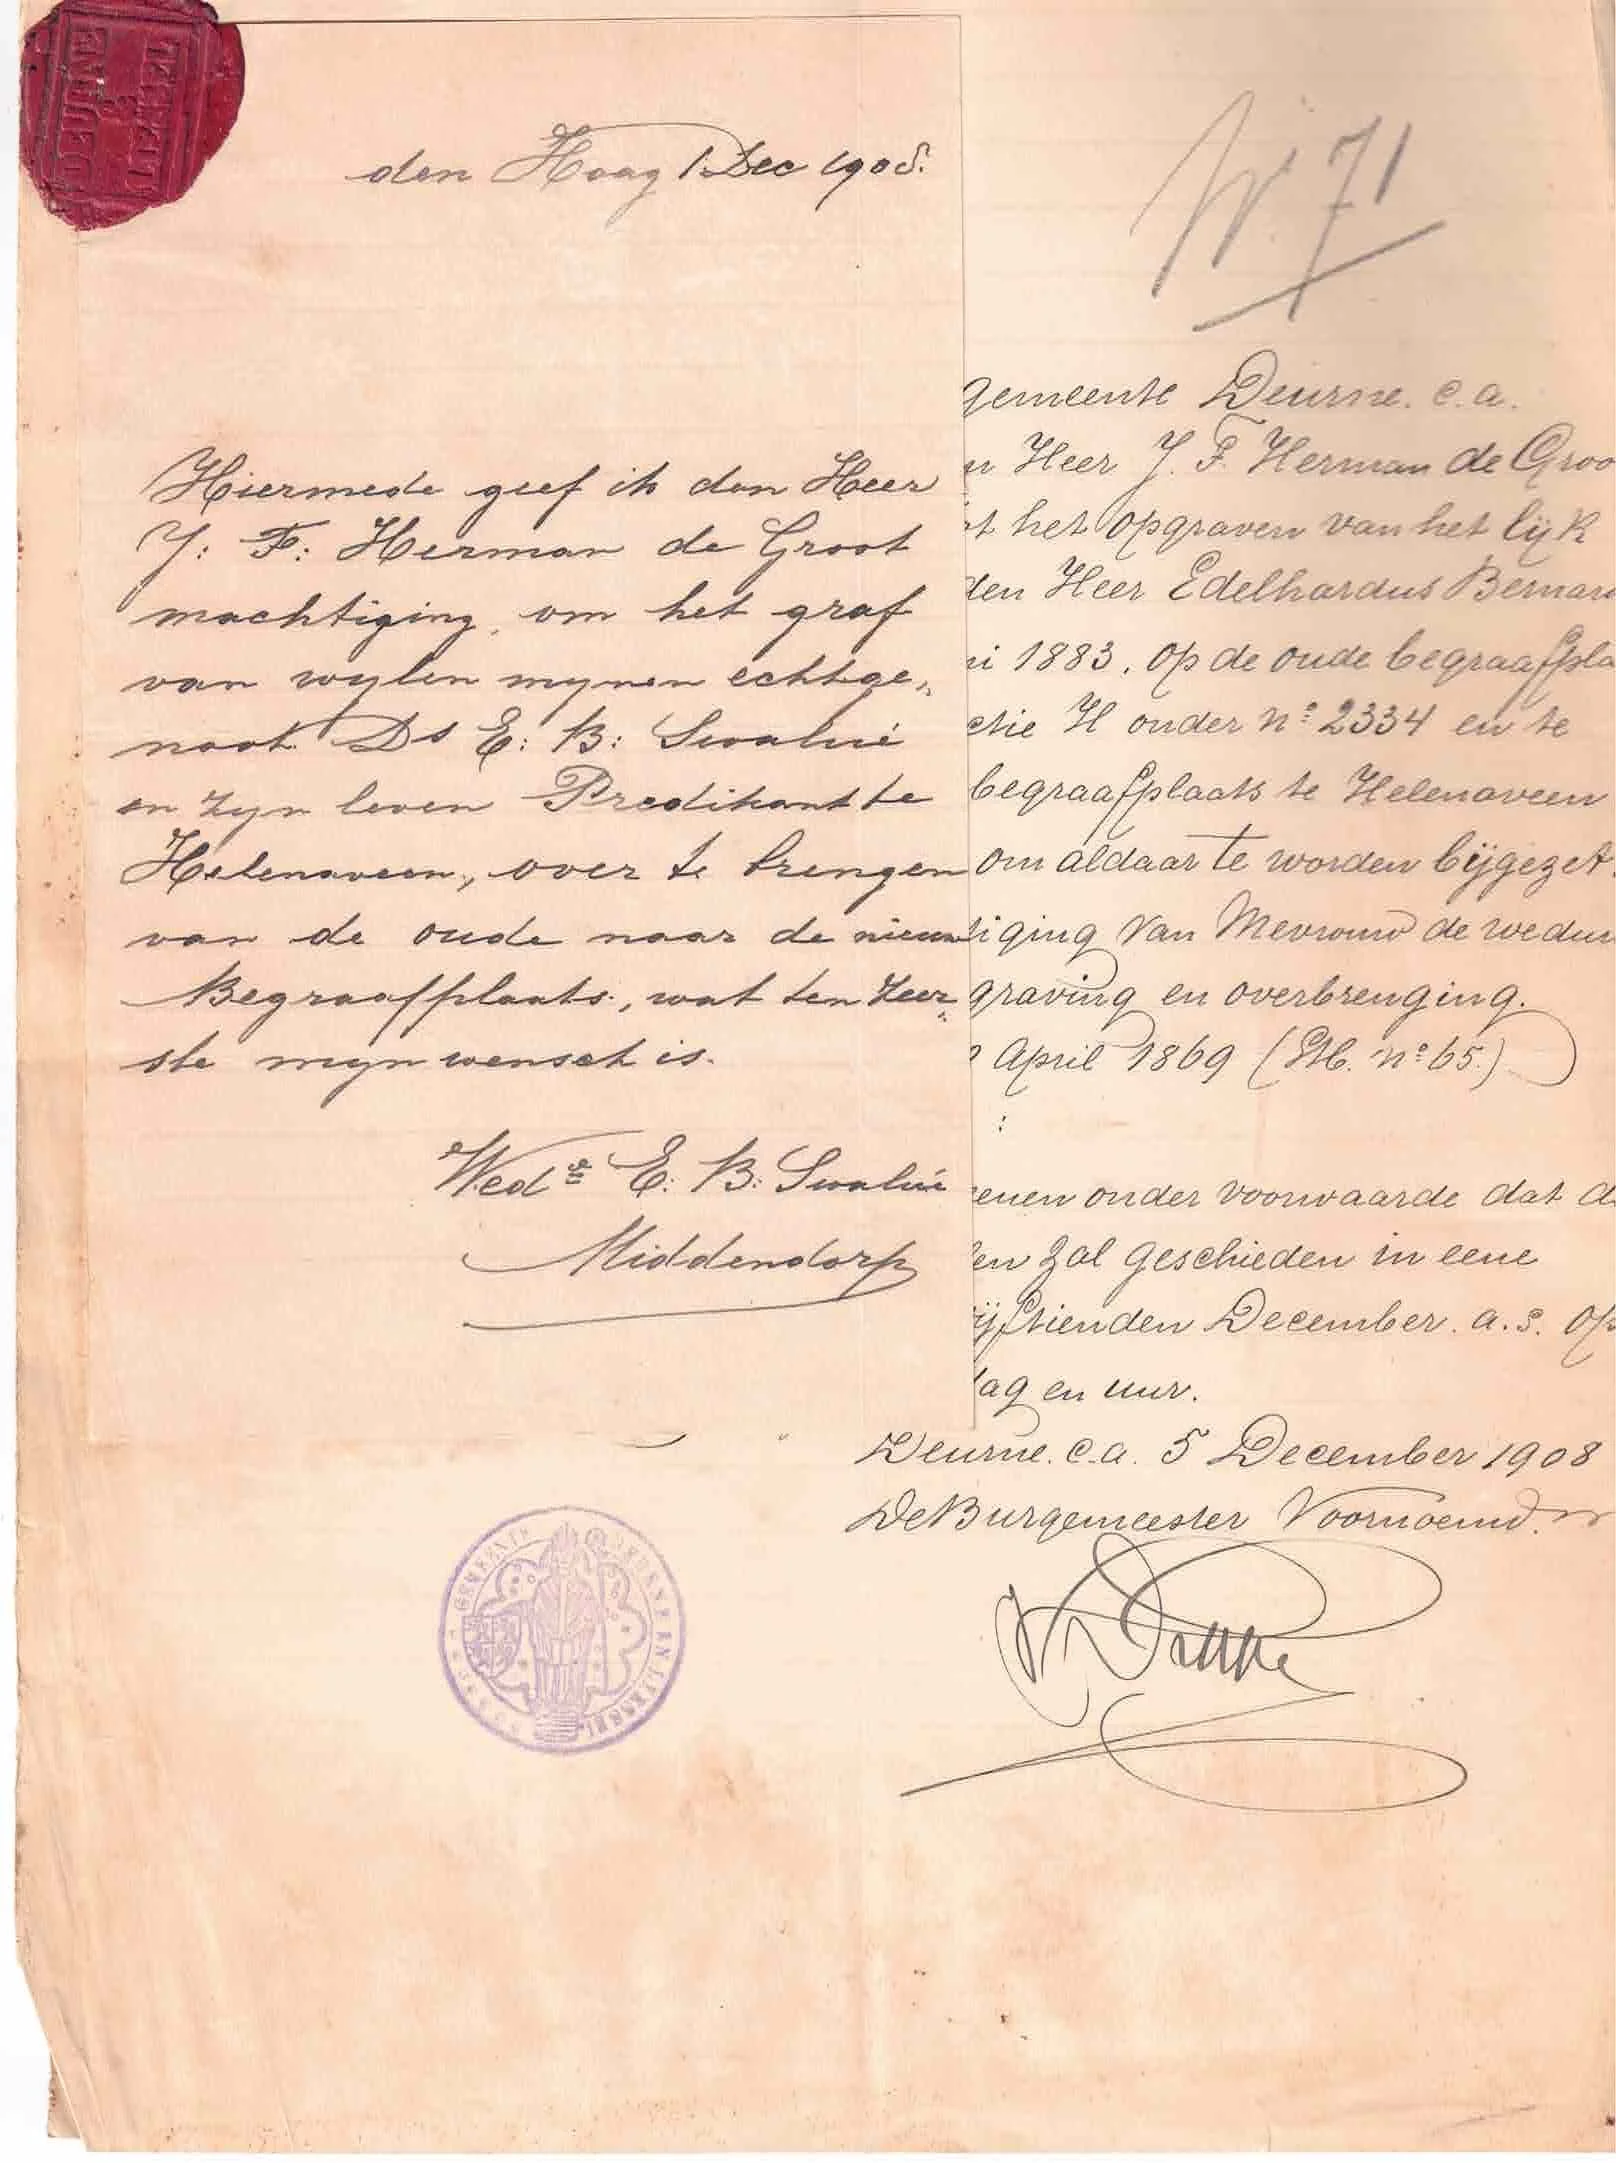 DEURNE
EN
LIESSEL
den Haag 1 Dec 1908.
Hiermede geef ik den Heer
J: F: Herman de Groot
machtiging, om het graf
van wylen mynen echtge„
noot Ds E: B: Swalué
in zyn leven Predikant te
Helenaveen, over te brengen
van de oude naar de nieuw
Begraafplaats, wat ten zeer„
ste myn wensch is.
Wed^e E: B: Swalué
Middendorp
N. 71
gemeente Deurne. c.a.
n Heer J. F. Herman de Groo
t het opgraven van het lijk
den Heer Edelhardus Bernard
ni 1883, op de oude begraafpla
ctie H onder nº 2334 en te
begraafplaats te Helenaveen
om aldaar te worden bijgezet.
tiging van Mevrouw de weduw
graving en overbrenging.
April 1869 (Stb. nº 65.)
:
enen onder voorwaarde dat d
en zal geschieden in eene
ijftienden December. a.s. op
dag en uur.
Deurne. c.a. 5 December 1908
De Burgemeester Voornoemd.
GEMEENTE DEURNE EN LIESSEL